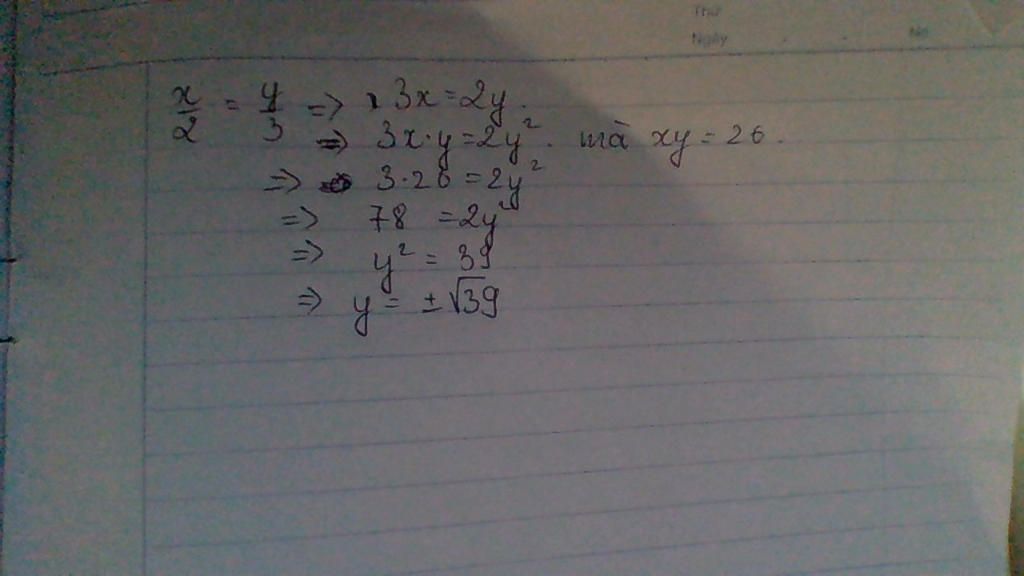 Thứ
Ngày . . No
x/2 = y/3 => 3x = 2y.
=> 3x.y = 2y². mà xy = 26.
=> 3.26 = 2y²
=> 78 = 2y²
=> y² = 39
=> y = ±√39